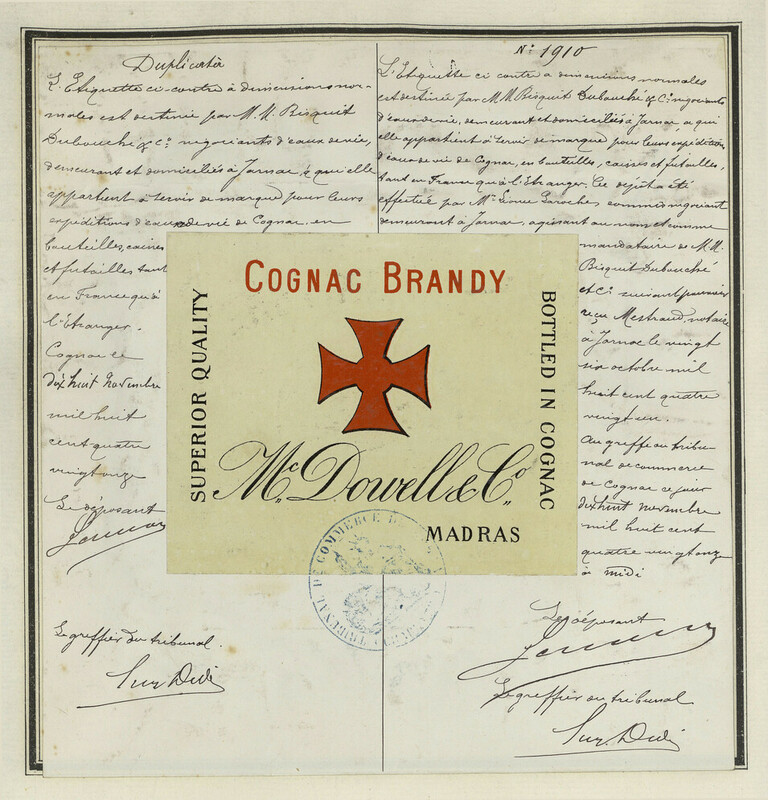 Duplicata
L'Etiquette ci-contre à dimensions nor-
males est destinée par M.M. Bisquit
Dubouché & Cº. négociants d'eaux devie,
demeurant et domiciliés à Jarnac, à qui elle
appartient à servir de marque pour leurs
expéditions d'eaux de vie de Cognac, en
bouteilles, caisses
et futailles tant
en France qu'à
l'Etranger.
Cognac le
dix huit Novembre
mil huit
cent quatre
vingt onze
Le déposant
Nº 1910
L'Etiquette ci contre à dimensions normales
est destinée par M.M. Bisquit Dubouché & Cº négociants
d'eaux devie, demeurant et domiciliés à Jarnac, à qui
elle appartient à servir de marque pour leurs expéditions
d'eaux de vie de Cognac, en bouteilles, caisses et futailles,
tant en France qu'à l'Etranger. Ce dépôt a été
effectué par Mr commis négociant
demeurant à Jarnac, agissant au nom et comme
mandataire de M.M.
Bisquit Dubouché
et Cº suivant pouvoir
reçu Mestraud, notaire
à Jarnac le vingt
six octobre mil
huit cent quatre
vingt un.
Au greffe du tribu-
nal de commerce
de Cognac ce jour
dix huit novembre
mil huit cent
quatre vingt onze
à midi
COGNAC BRANDY
SUPERIOR QUALITY
BOTTLED IN COGNAC
Mc. Dowell & Cº.
MADRAS
TRIBUNAL DE COMMERCE
Le greffier du tribunal.
Le déposant
Le greffier du tribunal